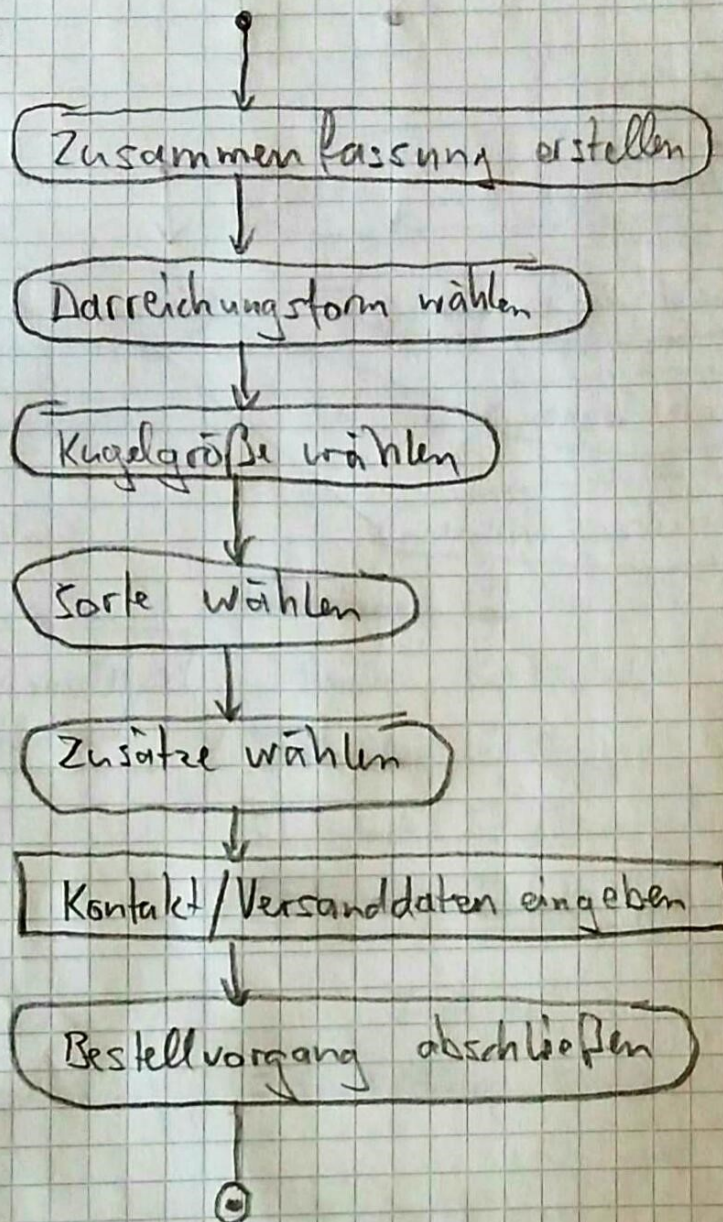 Zusammenfassung erstellen
Darreichungsform wählen
Kugelgröße wählen
Sorte wählen
Zusätze wählen
Kontakt/Versanddaten eingeben
Bestellvorgang abschließen